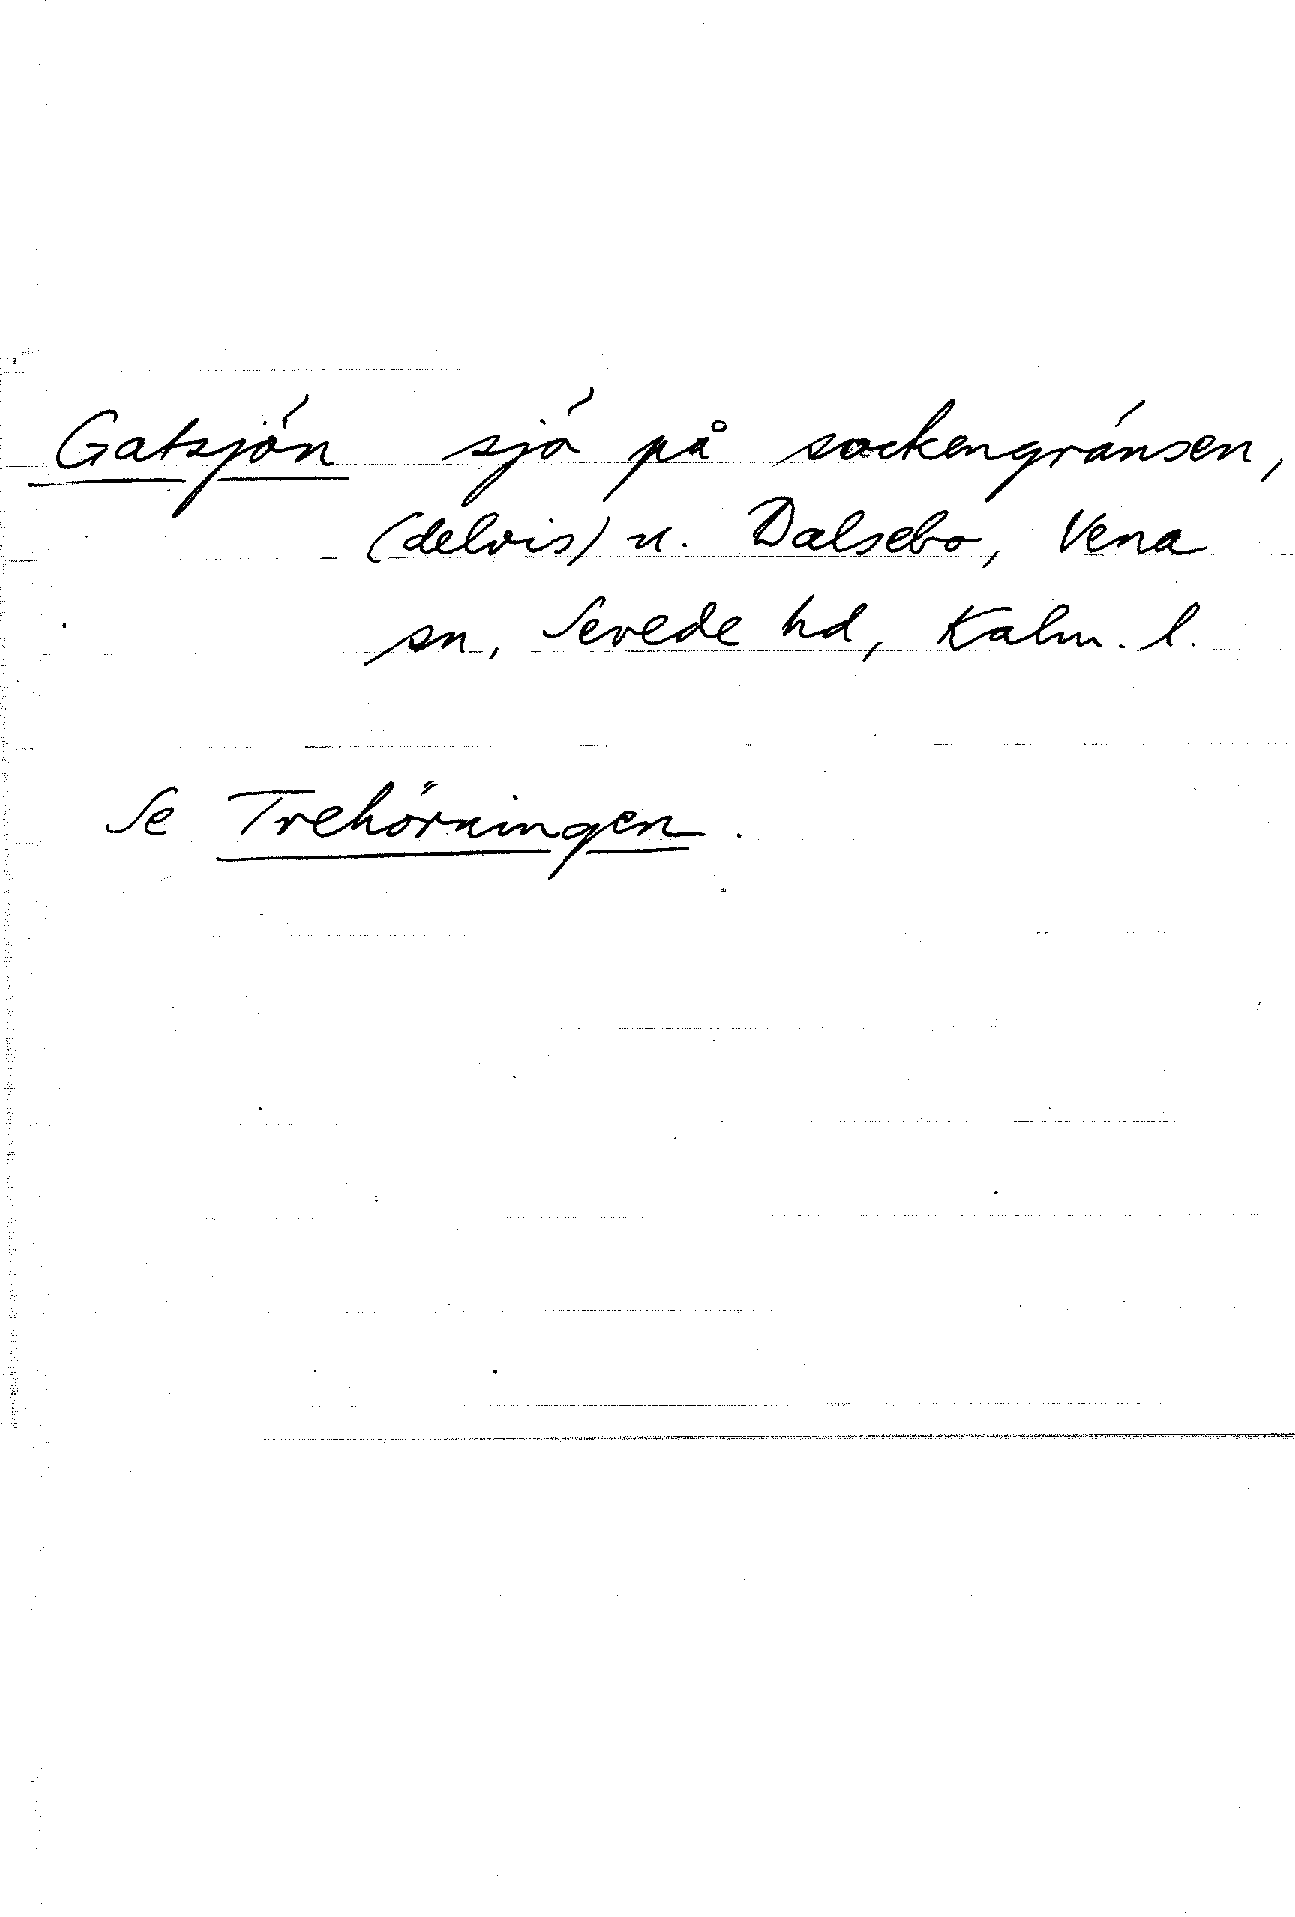 Gatsjön sjö på sockengränsen,
(delvis) u. Dalsebo, Vena
sn, Sevede hd, Kalm. l.
Se Trehörningen.